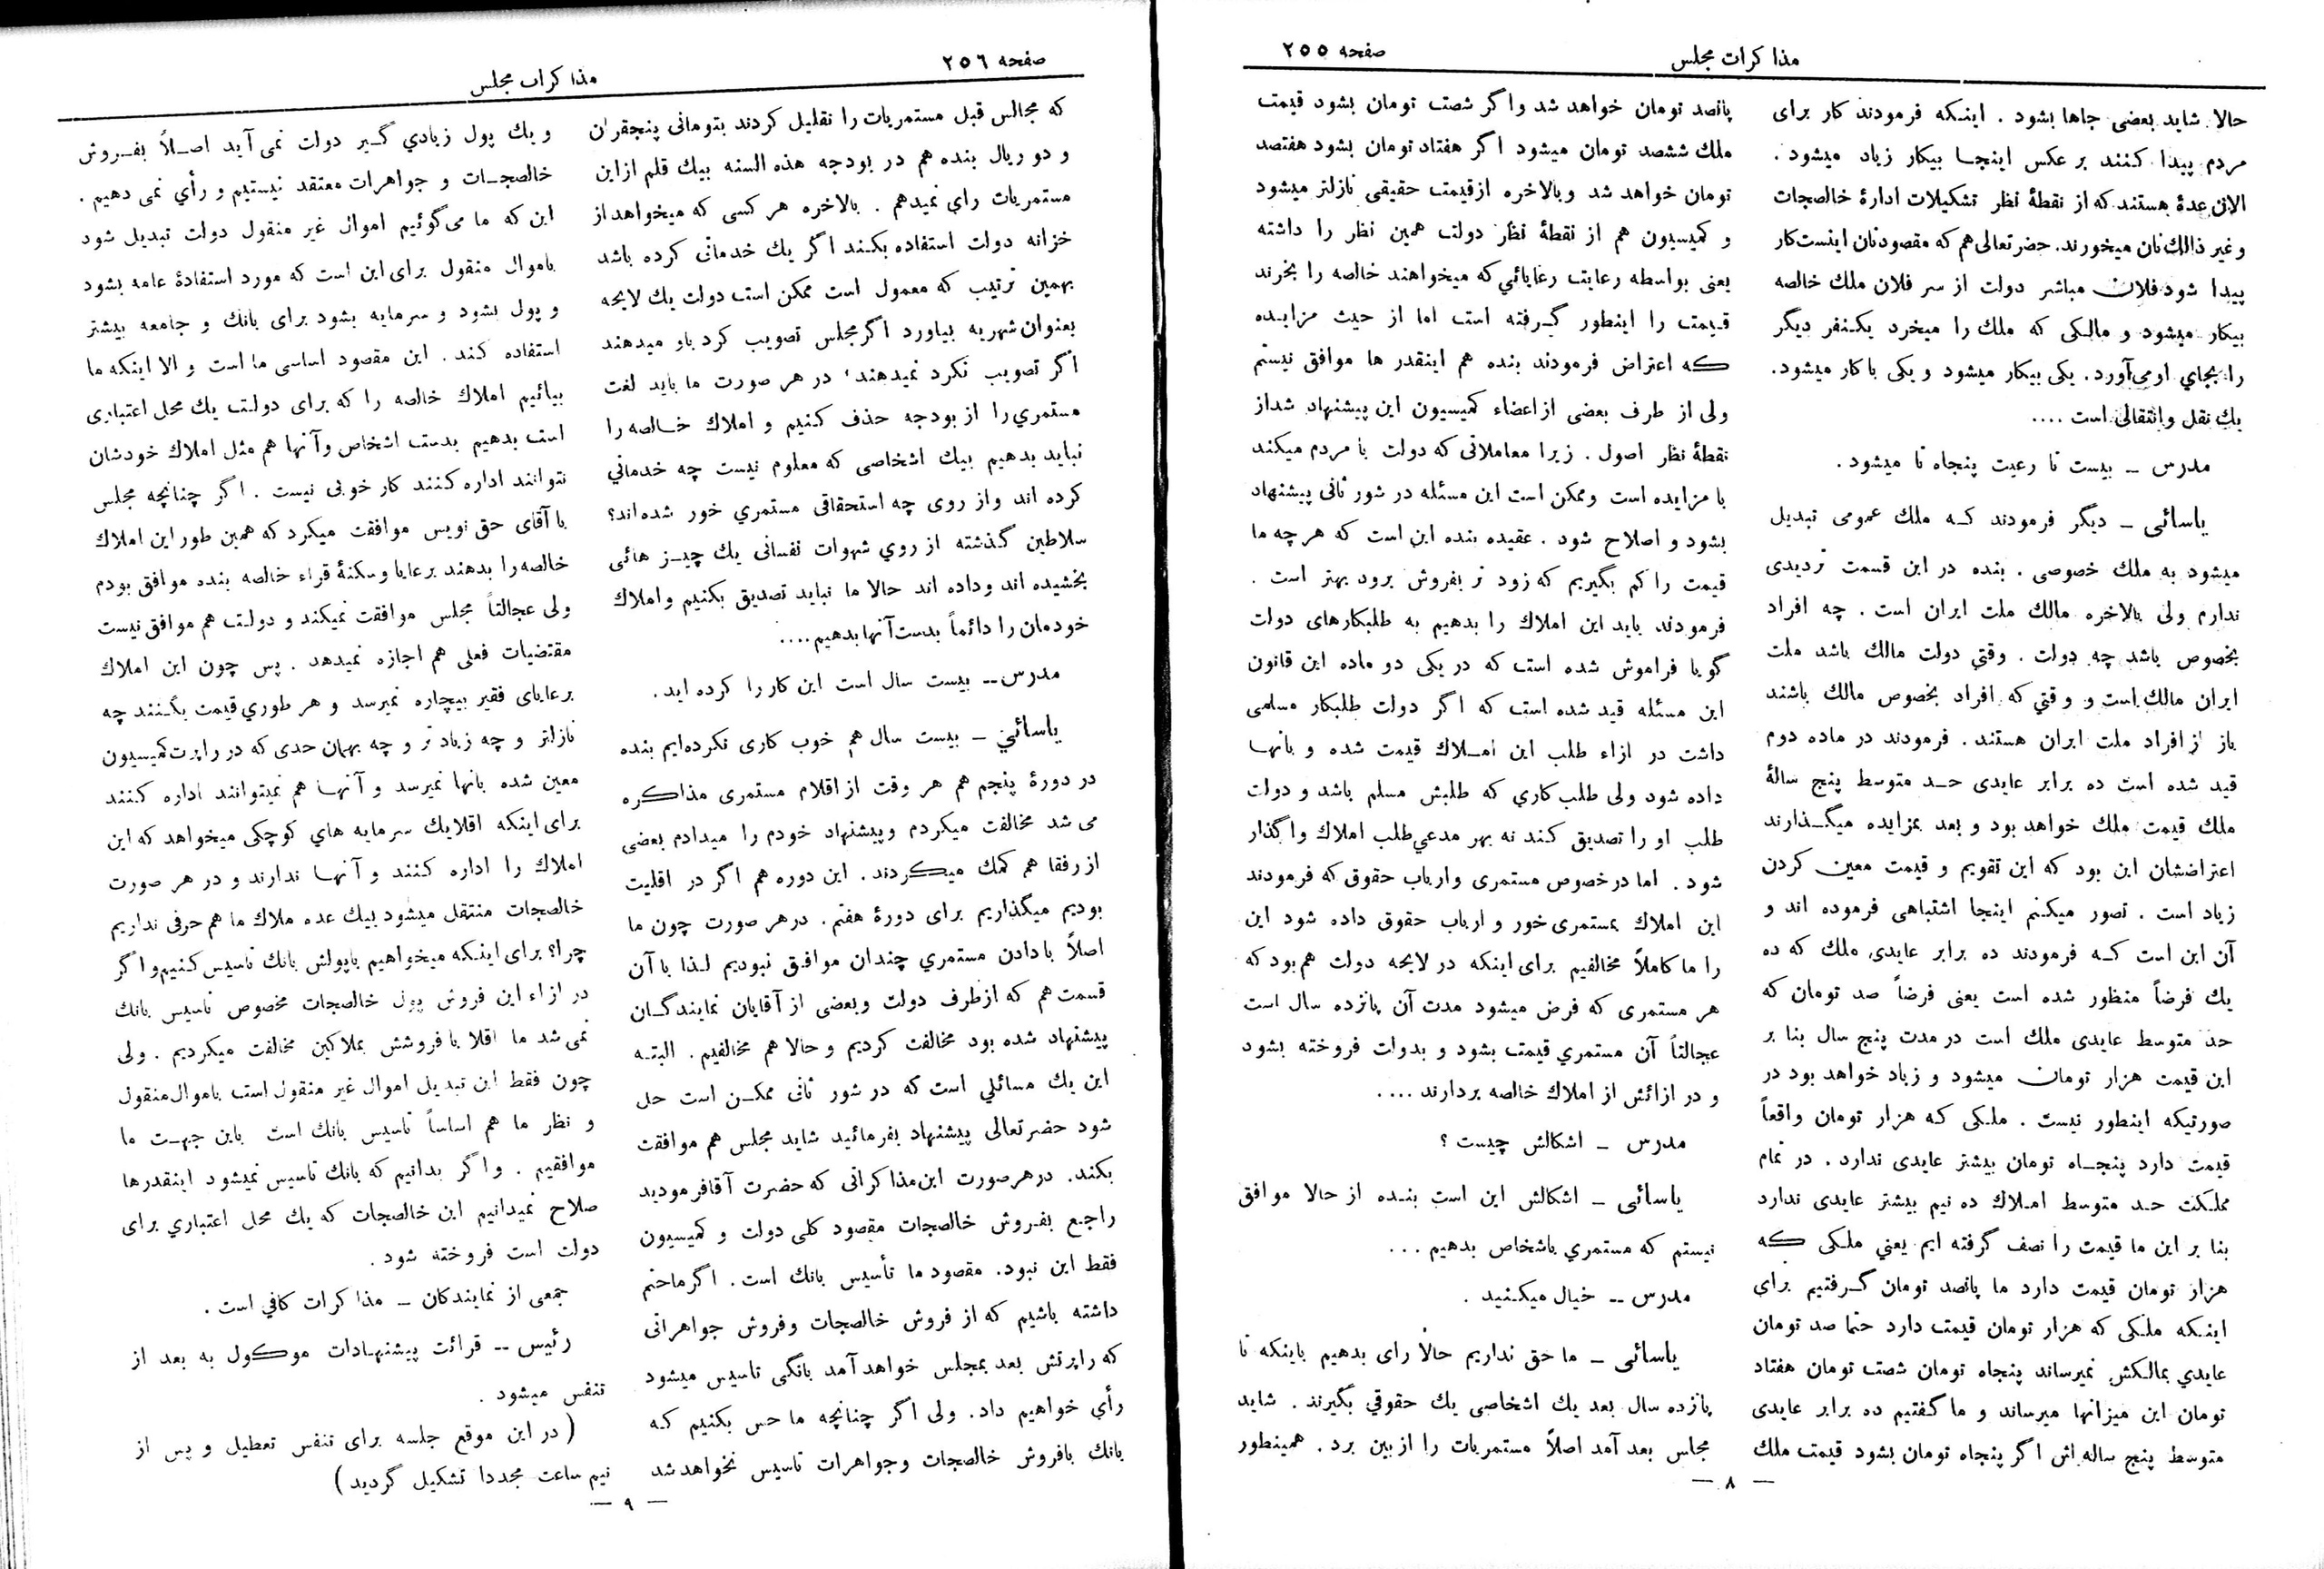 مذاکرات مجلس
صفحه ۲۵۵
حالا شاید بعضی جاها بشود . اینکه فرمودند کار برای
مردم پیدا کنند بر عکس اینجا بیکار زیاد میشود .
الان عدۀ هستند که از نقطۀ نظر تشکیلات ادارۀ خالصجات
و غیر ذالك نان میخورند. حضرتعالی هم که مقصودتان اینست کار
پیدا شود فلان مباشر دولت از سر فلان ملك خالصه
بیکار میشود و مالکی که ملك را میخرد یکنفر دیگر
را بجای او می‌آورد. یکی بیکار میشود و یکی با کار میشود.
یك نقل وانتقالی است ....
مدرس ــ بیست تا رعیت پنجاه تا میشود .
یاسائی ــ دیگر فرمودند که ملك عمومی تبدیل
میشود به ملك خصوصی . بنده در این قسمت تردیدی
ندارم ولی بالاخره مالك ملت ایران است . چه افراد
بخصوص باشد چه دولت . وقتي دولت مالك باشد ملت
ایران مالك است و وقتي که افراد بخصوص مالك باشند
باز از افراد ملت ایران هستند . فرمودند در ماده دوم
قید شده است ده برابر عایدی حد متوسط پنج سالۀ
ملك قیمت ملك خواهد بود و بعد بمزایده میگذارند
اعتراضشان این بود که این تقویم و قیمت معین کردن
زیاد است . تصور میکنم اینجا اشتباهی فرموده اند و
آن این است که فرمودند ده برابر عایدی ملك که ده
یك فرضاً منظور شده است یعنی فرضاً صد تومان که
حد متوسط عایدی ملك است در مدت پنج سال بنا بر
این قیمت هزار تومان میشود و زیاد خواهد بود در
صورتیکه اینطور نیست . ملکی که هزار تومان واقعاً
قیمت دارد پنجاه تومان بیشتر عایدی ندارد . در تمام
مملکت حد متوسط املاك ده نیم بیشتر عایدی ندارد
بنا بر این ما قیمت را نصف گرفته ایم یعني ملکی که
هزار تومان قیمت دارد ما پانصد تومان گرفتیم برای
اینکه ملکی که هزار تومان قیمت دارد حتما صد تومان
عایدي بمالکش نمیرساند پنجاه تومان شصت تومان هفتاد
تومان این میزانها میرساند و ما گفتیم ده برابر عایدی
متوسط پنج ساله اش اگر پنجاه تومان بشود قیمت ملك
پانصد تومان خواهد شد و اگر شصت تومان بشود قیمت
ملك ششصد تومان میشود اگر هفتاد تومان بشود هفتصد
تومان خواهد شد و بالاخره ازقیمت حقیقی نازلتر میشود
و کمیسیون هم از نقطۀ نظر دولت همین نظر را داشته
یعنی بواسطه رعایت رعایائي که میخواهند خالصه را بخرند
قیمت را اینطور گرفته است اما از حیث مزایده
که اعتراض فرمودند بنده هم اینقدر ها موافق نیستم
ولی از طرف بعضی از اعضاء کمیسیون این پیشنهاد شداز
نقطۀ نظر اصول . زیرا معاملاتی که دولت با مردم میکند
با مزایده است وممکن است این مسئله در شور ثانی پیشنهاد
بشود و اصلاح شود . عقیده بنده این است که هر چه ما
قیمت را کم بگیریم که زود تر بفروش برود بهتر است .
فرمودند باید این املاك را بدهیم به طلبکارهای دولت
گویا فراموش شده است که در یکی دو ماده این قانون
این مسئله قید شده است که اگر دولت طلبکار مسلمی
داشت در ازاء طلب این املاك قیمت شده و بآنها
داده شود ولی طلب کاري که طلبش مسلم باشد و دولت
طلب او را تصدیق کند نه بهر مدعي طلب املاك واگذار
شود . اما در خصوص مستمری و ارباب حقوق که فرمودند
این املاك بمستمری خور و ارباب حقوق داده شود این
را ما کاملاً مخالفیم برای اینکه در لایحه دولت هم بود که
هر مستمری که فرض میشود مدت آن پانزده سال است
عجالتاً آن مستمري قیمت بشود و بدوات فروخته بشود
و در ازائش از املاك خالصه بردارند ....
مدرس ــ اشکالش چیست ؟
یاسائی ــ اشکالش این است بنده از حالا موافق
نیستم که مستمري باشخاص بدهیم ...
مدرس ــ خیال میکنید .
یاسائی ــ ما حق نداریم حالا رای بدهیم باینکه تا
پانزده سال بعد یك اشخاصی یك حقوقي بگیرند . شاید
مجلس بعد آمد اصلاً مستمریات را از بین برد . همینطور
— ۸ —
صفحه ۲۵٦
مذاکرات مجلس
که مجالس قبل مستمریات را تقلیل کردند بتومانی پنجقران
و دو ریال بنده هم در بودجه هذه السنه بیك قلم ازاین
مستمریات رای نمیدهم . بالاخره هر کسی که میخواهد از
خزانه دولت استفاده بکند اگر یك خدماتی کرده باشد
بهمین ترتیب که معمول است ممکن است دولت یك لایحه
بعنوان شهریه بیاورد اگر مجلس تصویب کرد باو میدهند
اگر تصویب نکرد نمیدهند، در هر صورت ما باید لغت
مستمري را از بودجه حذف کنیم و املاك خالصه را
نباید بدهیم بیك اشخاصی که معلوم نیست چه خدماتي
کرده اند و از روی چه استحقاقی مستمري خور شده‌اند؟
سلاطین گذشته از روي شهوات نفسانی یك چیز هائی
بخشیده اند و داده اند حالا ما نباید تصدیق بکنیم و املاك
خودمان را دائماً بدست آنها بدهیم ....
مدرس ــ بیست سال است این کار را کرده اید .
یاسائي ــ بیست سال هم خوب کاری نکرده‌ایم بنده
در دورۀ پنجم هم هر وقت از اقلام مستمری مذاکره
می شد مخالفت میکردم و پیشنهاد خودم را میدادم بعضی
از رفقا هم کمك میکردند . این دوره هم اگر در اقلیت
بودیم میگذاریم برای دورۀ هفتم . در هر صورت چون ما
اصلاً با دادن مستمري چندان موافق نبودیم لذا با آن
قسمت هم که ازطرف دولت وبعضی از آقایان نمایندگان
پیشنهاد شده بود مخالفت کردیم و حالا هم مخالفیم . البته
این یك مسائلي است که در شور ثانی ممکن است حل
شود حضرتعالی پیشنهاد بفرمائید شاید مجلس هم موافقت
بکند. در هر صورت این مذاکراتی که حضرت آقا فرمودید
راجع بفروش خالصجات مقصود کلی دولت و کمیسیون
فقط این نبود. مقصود ما تأسیس بانك است . اگر ما حتم
داشته باشیم که از فروش خالصجات وفروش جواهراتی
که راپرتش بعد بمجلس خواهد آمد بانگی تاسیس میشود
رأي خواهیم داد. ولی اگر چنانچه ما حس بکنیم که
بانك بافروش خالصجات وجواهرات تاسیس نخواهد شد
و یك پول زیادي گیر دولت نمی آید اصلاً بفروش
خالصجات و جواهرات معتقد نیستیم و رأي نمی دهیم .
این که ما می گوئیم اموال غیر منقول دولت تبدیل شود
باموال منقول برای این است که مورد استفادۀ عامه بشود
و پول بشود و سرمایه بشود برای بانك و جامعه بیشتر
استفاده کند . این مقصود اساسی ما است و الا اینکه ما
بیائیم املاك خالصه را که برای دولت یك محل اعتباری
است بدهیم بدست اشخاص وآنها هم مثل املاك خودشان
نتوانند اداره کنند کار خوبی نیست . اگر چنانچه مجلس
با آقای حق نویس موافقت میکرد که همین طور این املاك
خالصه را بدهند برعایا وسکنۀ قراء خالصه بنده موافق بودم
ولی عجالتاً مجلس موافقت نمیکند و دولت هم موافق نیست
مقتضیات فعلی هم اجازه نمیدهد . پس چون این املاك
برعایای فقیر بیچاره نمیرسد و هر طوري قیمت بکنند چه
نازلتر و چه زیاد تر و چه بهمان حدی که در راپرت کمیسیون
معین شده بآنها نمیرسد و آنها هم نمیتوانند اداره کنند
برای اینکه اقلا یك سرمایه هاي کوچکی میخواهد که این
املاك را اداره کنند و آنها ندارند و در هر صورت
خالصجات منتقل میشود بیك عده ملاك ما هم حرفی نداریم
چرا؟ برای اینکه میخواهیم باپولش بانك تاسیس کنیم و اگر
در ازاء این فروش پول خالصجات مخصوص تاسیس بانك
نمی شد ما اقلا با فروشش بملاکین مخالفت میکردیم . ولی
چون فقط این تبدیل اموال غیر منقول است باموال منقول
و نظر ما هم اساساً تاسیس بانك است باین جهت ما
موافقیم . و اگر بدانیم که بانك تاسیس نمیشود اینقدرها
صلاح نمیدانیم این خالصجات که یك محل اعتباري برای
دولت است فروخته شود .
جمعی از نمایندگان ــ مذاکرات کافي است .
رئیس ــ قرائت پیشنهادات موکول به بعد از
تنفس میشود .
( در این موقع جلسه برای تنفس تعطیل و پس از
نیم ساعت مجددا تشکیل گردید )
— ۹ —